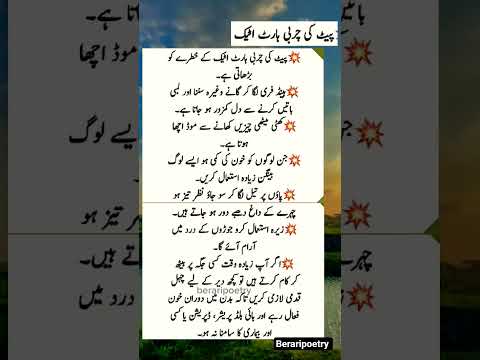 پیٹ کی چربی ہارٹ اٹیک
پیٹ کی چربی ہارٹ اٹیک کے خطرے کو
بڑھاتی ہے۔
ہینڈ فری لگا کر گانے وغیرہ سننا اور لمبی
باتیں کرنے سے دل کمزور ہو جاتا ہے۔
کھٹی میٹھی چیزیں کھانے سے موڈ اچھا
ہوتا ہے۔
جن لوگوں کو خون کی کمی ہو ایسے لوگ
بینگن زیادہ استعمال کریں۔
پاؤں پر تیل لگا کر سو جاؤ نظر تیز ہو
چہرے کے داغ دھبے دور ہو جاتے ہیں۔
زیرہ استعمال کرو جوڑوں کے درد میں
آرام آئے گا۔
اگر آپ زیادہ وقت کسی جگہ پر بیٹھ
کر کام کرتے ہیں تو کچھ دیر کے لیے چہل
قدمی لازمی کریں تاکہ بدن میں دوران خون
فعال رہے اور ہائی بلڈ پریشر، ڈپریشن یا کسی
اور بیماری کا سامنا نہ ہو۔
beraripoetry
موڈ اچھا
یسے لوگ
تیز ہو
ہیں۔
درد میں
Beraripoetry